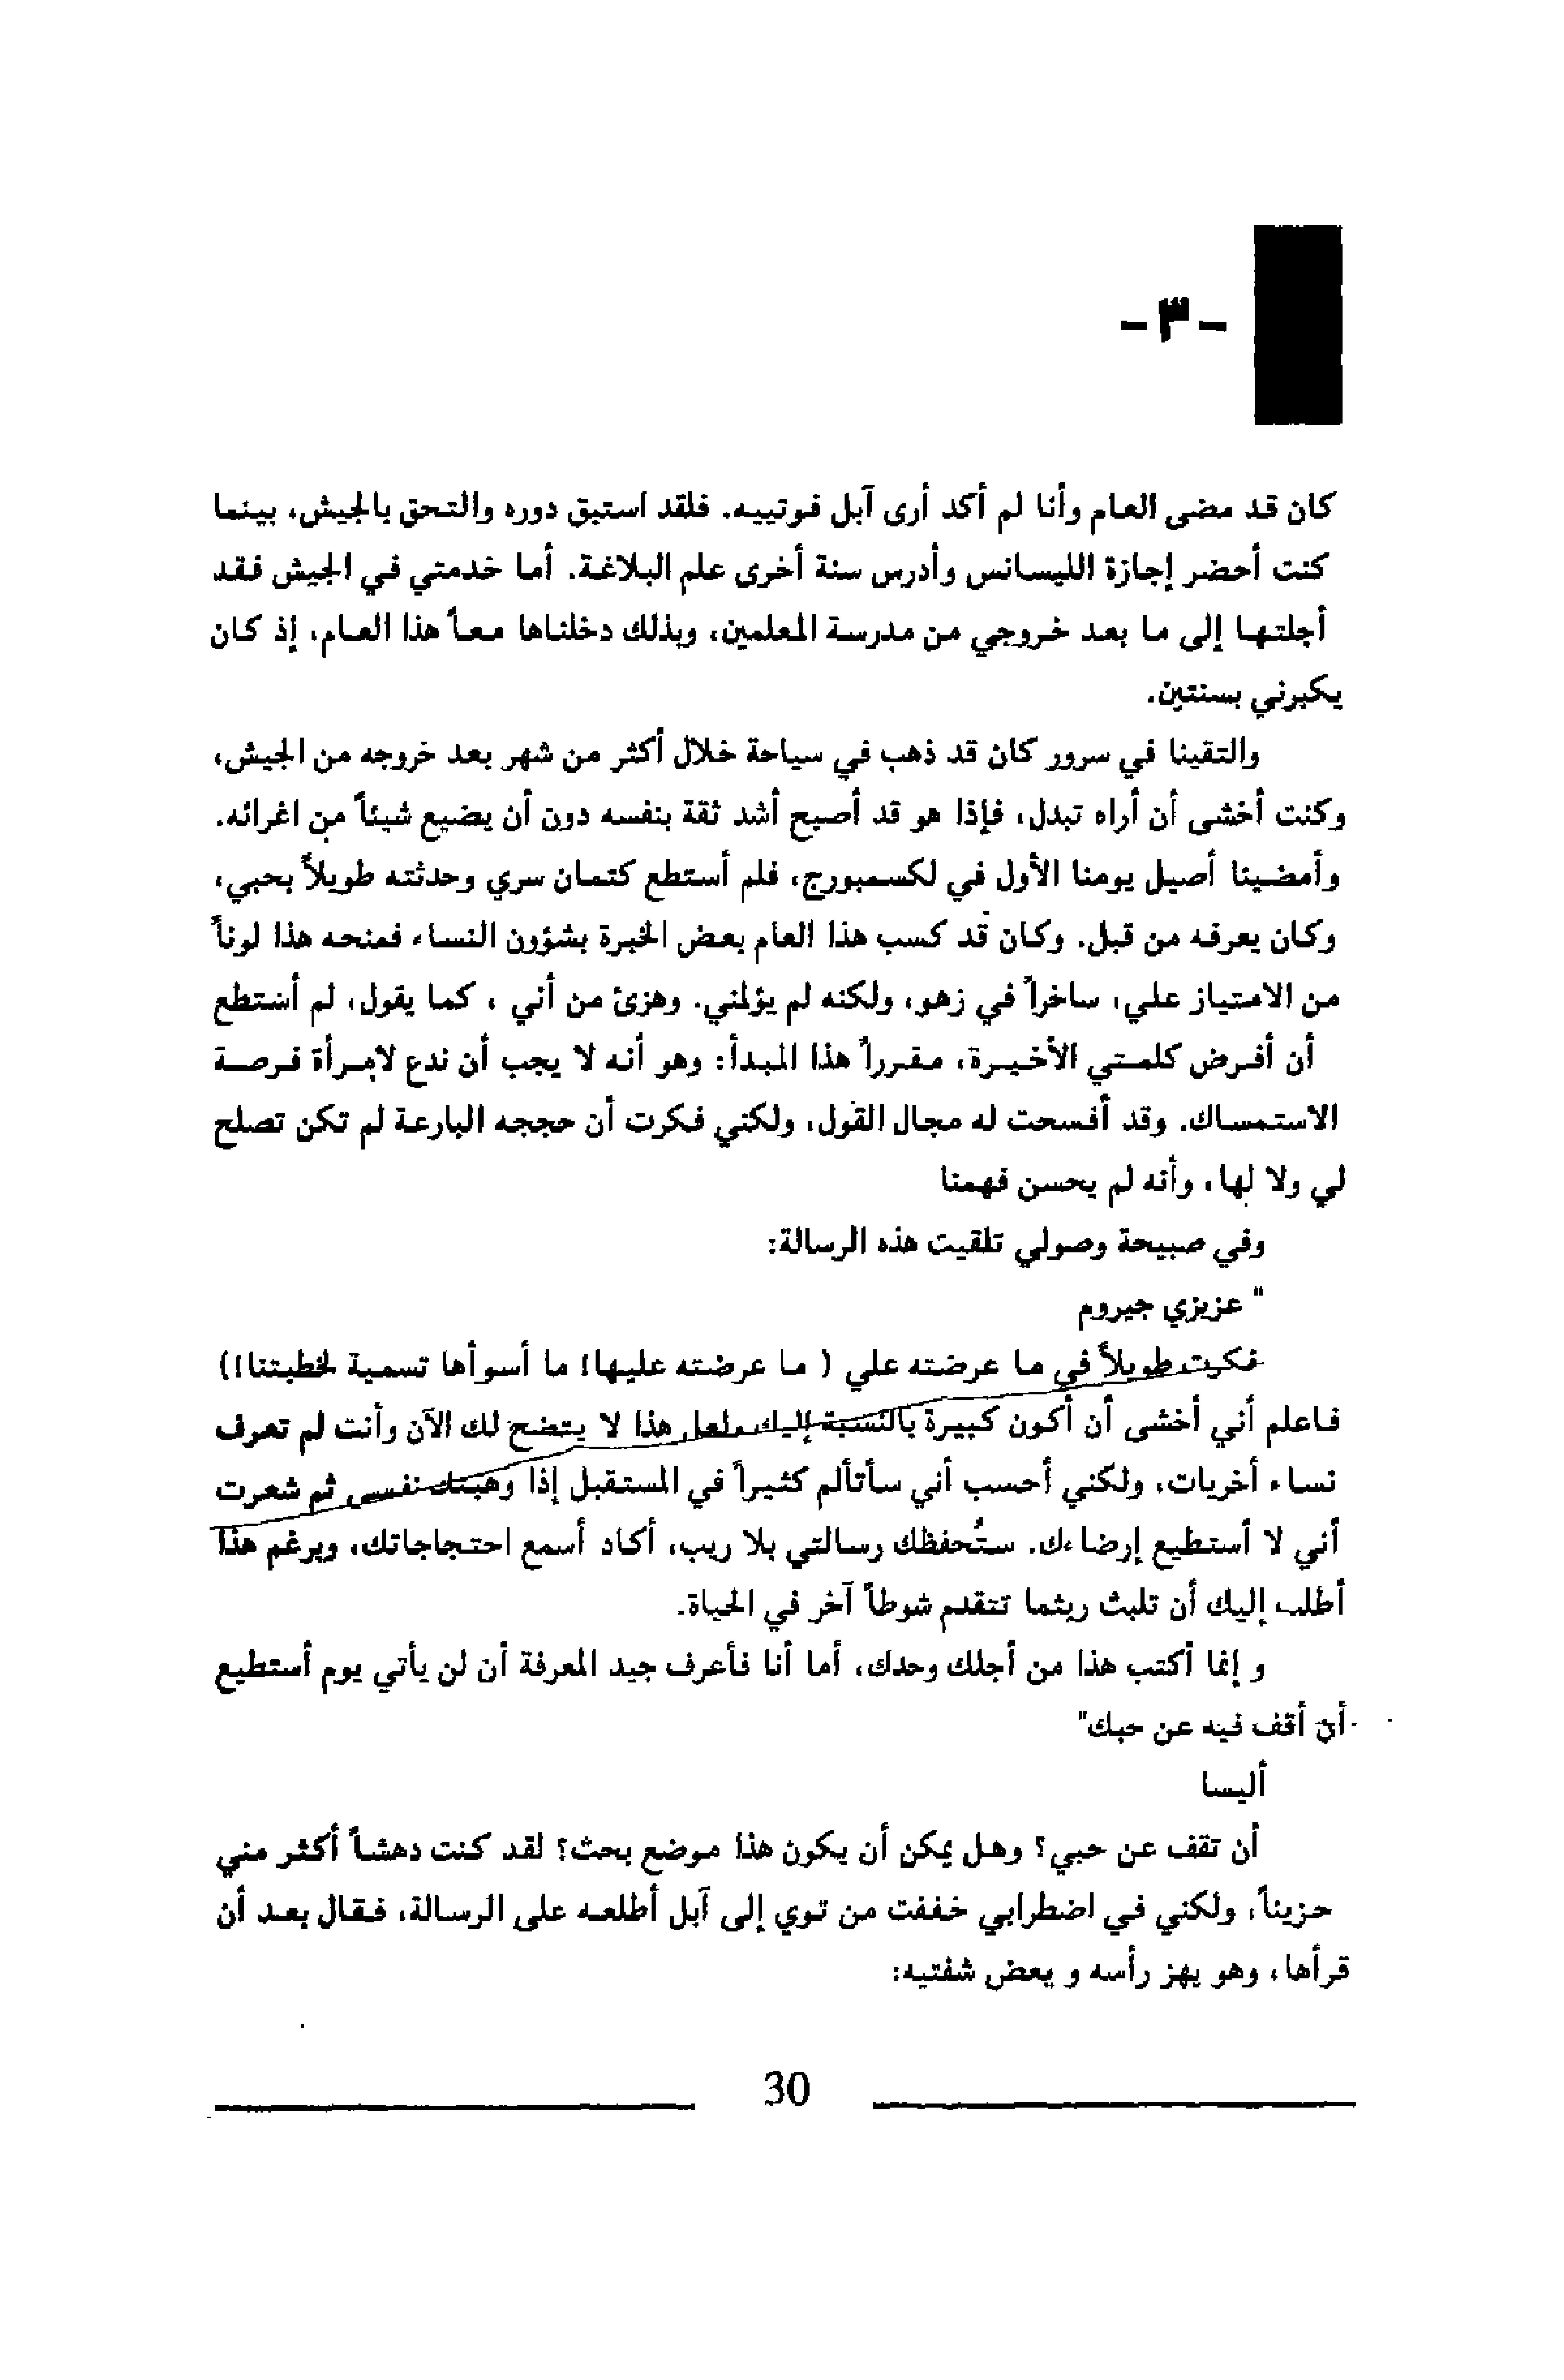 - ٣ -
كان قد مضى العام وأنا لم أكد أرى آبل فوتييه. فلقد استبق دوره والتحق بالجيش، بينما
كنت أحضر إجازة الليسانس وأدرس سنة أخرى علم البلاغة. أما خدمتي في الجيش فقد
أجلتها إلى ما بعد خروجي من مدرسة المعلمين، وبذلك دخلناها معاً هذا العام، إذ كان
يكبرني بسنتين.
والتقينا في سرور كان قد ذهب في سياحة خلال أكثر من شهر بعد خروجه من الجيش،
وكنت أخشى أن أراه تبدل، فإذا هو قد أصبح أشد ثقة بنفسه دون أن يضيع شيئاً من اغرائه.
وأمضينا أصيل يومنا الأول في لكسمبورج، فلم أستطع كتمان سري وحدثته طويلاً بحبي،
وكان يعرفه من قبل. وكان قد كسب هذا العام بعض الخبرة بشؤون النساء فمنحه هذا لوناً
من الامتياز علي، ساخراً في زهو، ولكنه لم يؤلمني. وهزئ من أني ، كما يقول، لم أستطع
أن أفرض كلمتي الأخيرة، مقرراً هذا المبدأ: وهو أنه لا يجب أن ندع لامرأة فرصة
الاستمساك. وقد أفسحت له مجال القول، ولكني فكرت أن حججه البارعة لم تكن تصلح
لي ولا لها، وأنه لم يحسن فهمنا
وفي صبيحة وصولي تلقيت هذه الرسالة:
" عزيزي جيروم
فكرت طويلاً في ما عرضته علي ( ما عرضته عليها! ما أسوأها تسمية لخطبتنا!)
فاعلم أني أخشى أن أكون كبيرة بالنسبة إليك ولعل هذا لا يتضح لك الآن وأنت لم تعرف
نساء أخريات، ولكني أحسب أني سأتألم كثيراً في المستقبل إذا وهبتك نفسي ثم شعرت
أني لا أستطيع إرضاءك. ستُحفظك رسالتي بلا ريب، أكاد أسمع احتجاجاتك، وبرغم هذا
أطلب إليك أن تلبث ريثما تتقدم شوطاً آخر في الحياة.
و إنما أكتب هذا من أجلك وحدك، أما أنا فأعرف جيد المعرفة أن لن يأتي يوم أستطيع
أن أقف فيه عن حبك"
أليسا
أن تقف عن حبي؟ وهل يمكن أن يكون هذا موضع بحث؟ لقد كنت دهشاً أكثر مني
حزيناً، ولكني في اضطرابي خففت من توي إلى آبل أطلعه على الرسالة، فقال بعد أن
قرأها، وهو يهز رأسه و يعض شفتيه:
30